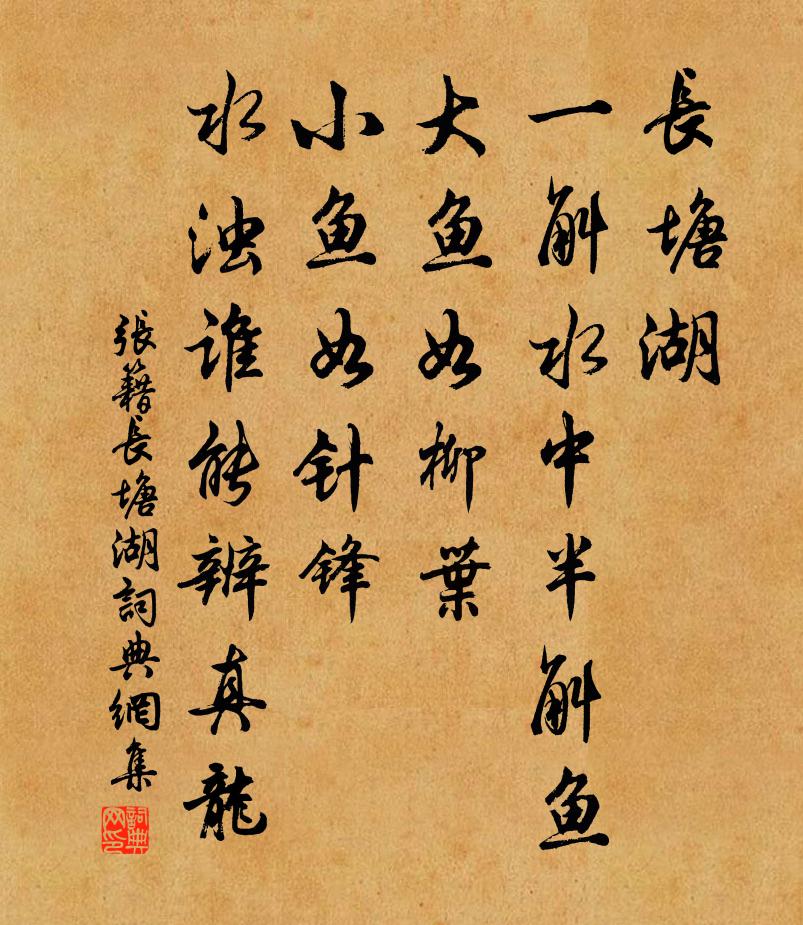 長塘湖
一斛水中半斛鱼
大鱼如柳葉
小鱼如针锋
水浊谁能辨真龍
張籍長塘湖詞典網集
詞典网印